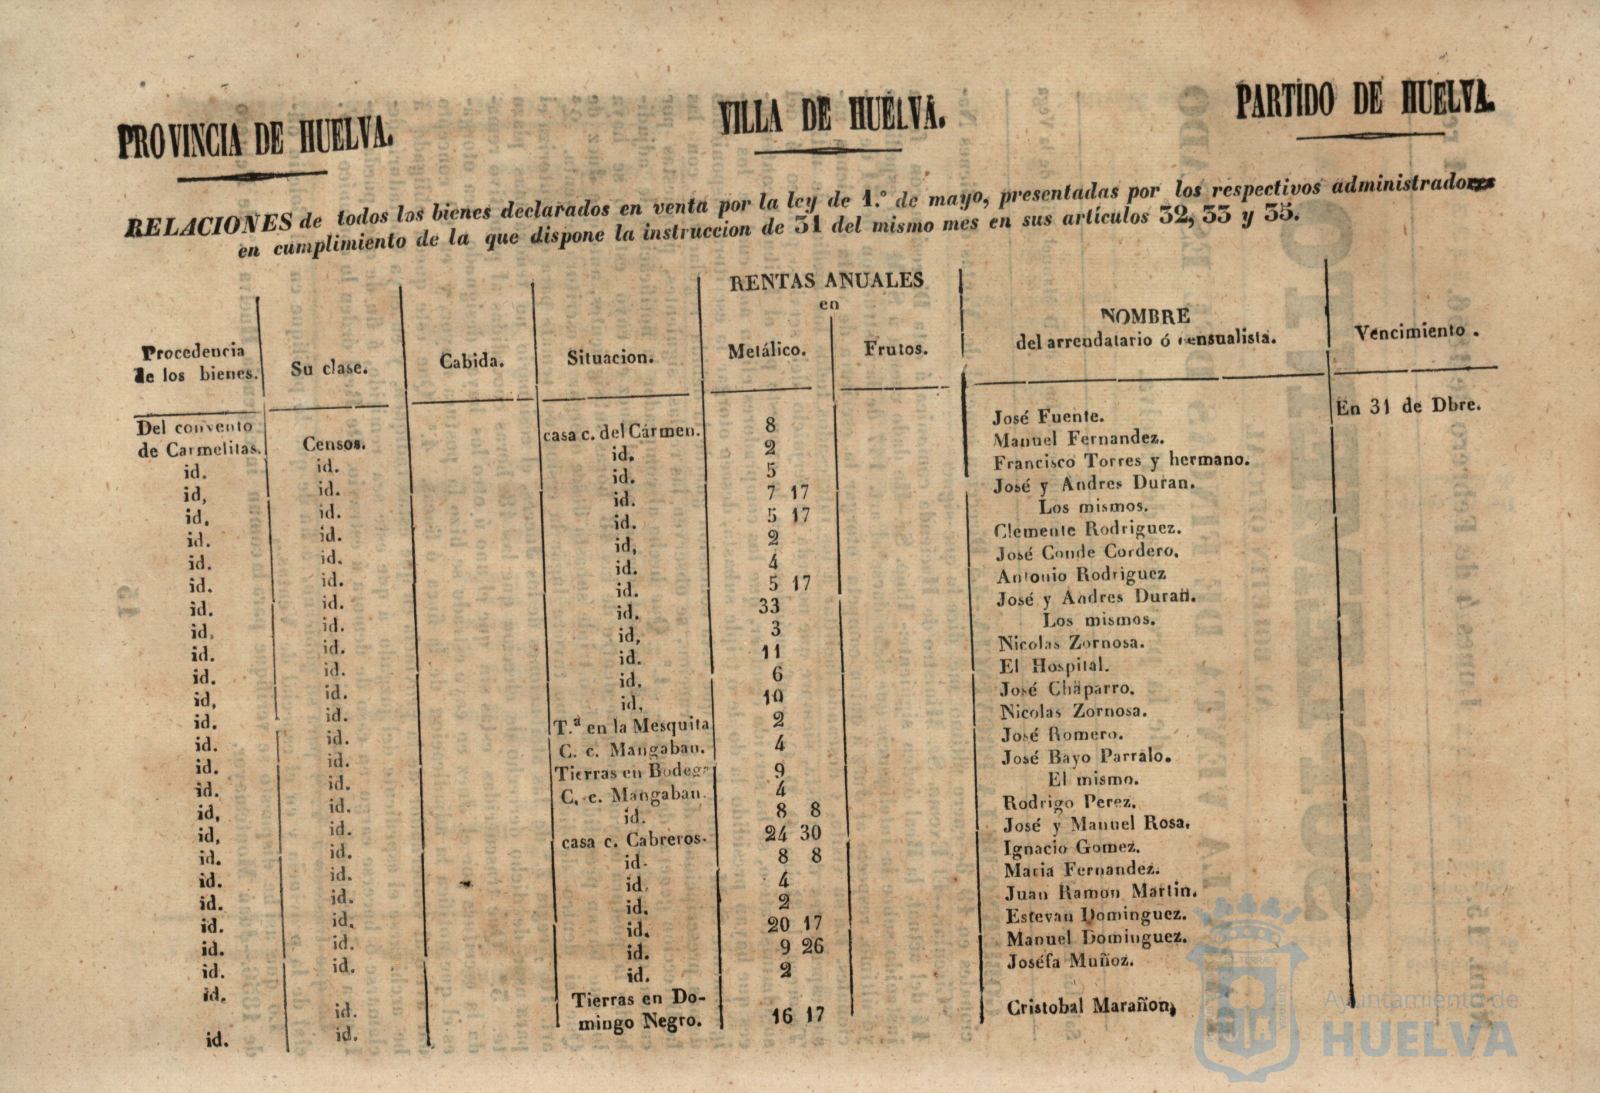 PROVINCIA DE HUELVA. VILLA DE HUELVA. PARTIDO DE HUELVA.
RELACIONES de todos los bienes declarados en venta por la ley de 1.º de mayo, presentadas por los respectivos administradores
en cumplimiento de la que dispone la instruccion de 31 del mismo mes en sus artículos 32, 33 y 35.
Procedencia de los bienes. Su clase. Cabida. Situacion. RENTAS ANUALES en Metálico. Frutos. NOMBRE del arrendatario ó censualista. Vencimiento.
Del convento de Carmelitas. Censos. casa c. del Cármen. 8 José Fuente. En 31 de Dbre.
id. id. id. 2 Manuel Fernandez.
id, id. id. 5 Francisco Torres y hermano.
id. id. id. 7 17 José y Andres Duran.
id. id. id. 5 17 Los mismos.
id. id. id, 2 Clemente Rodriguez.
id. id. id. 4 José Conde Cordero.
id. id. id. 5 17 Antonio Rodriguez
id, id. id. 33 José y Andres Duran.
id. id. id, 3 Los mismos.
id. id. id. 11 Nicolas Zornosa.
id, id. id. 6 El Hospital.
id. id. id, 10 José Chaparro.
id. id. T.ª en la Mesquita 2 Nicolas Zornosa.
id. id. C. c. Mangaban. 4 José Romero.
id. id. Tierras en Bodega 9 José Bayo Parralo.
id, id. C, c. Mangaban. 4 El mismo.
id, id. id. 8 8 Rodrigo Perez.
id. id. casa c. Cabreros. 24 30 José y Manuel Rosa.
id. id. id. 8 8 Ignacio Gomez.
id. id. id. 4 Maria Fernandez.
id. id. id. 2 Juan Ramon Martin.
id. id. id. 20 17 Estevan Dominguez.
id. id. id. 9 26 Manuel Dominguez.
id. id. id. 2 Joséfa Muñoz.
id. id. Tierras en Domingo Negro. 16 17 Cristobal Marañon,
Ayuntamiento de
HUELVA